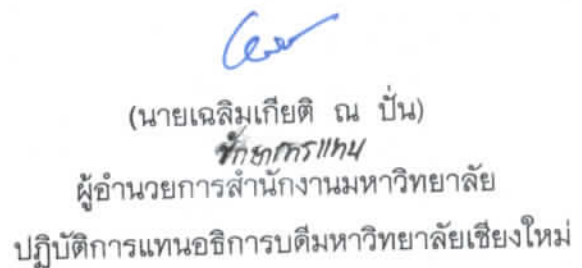 (นายเฉลิมเกียติ ณ ปั่น)
รักษาการแทน
ผู้อำนวยการสำนักงานมหาวิทยาลัย
ปฏิบัติการแทนอธิการบดีมหาวิทยาลัยเชียงใหม่